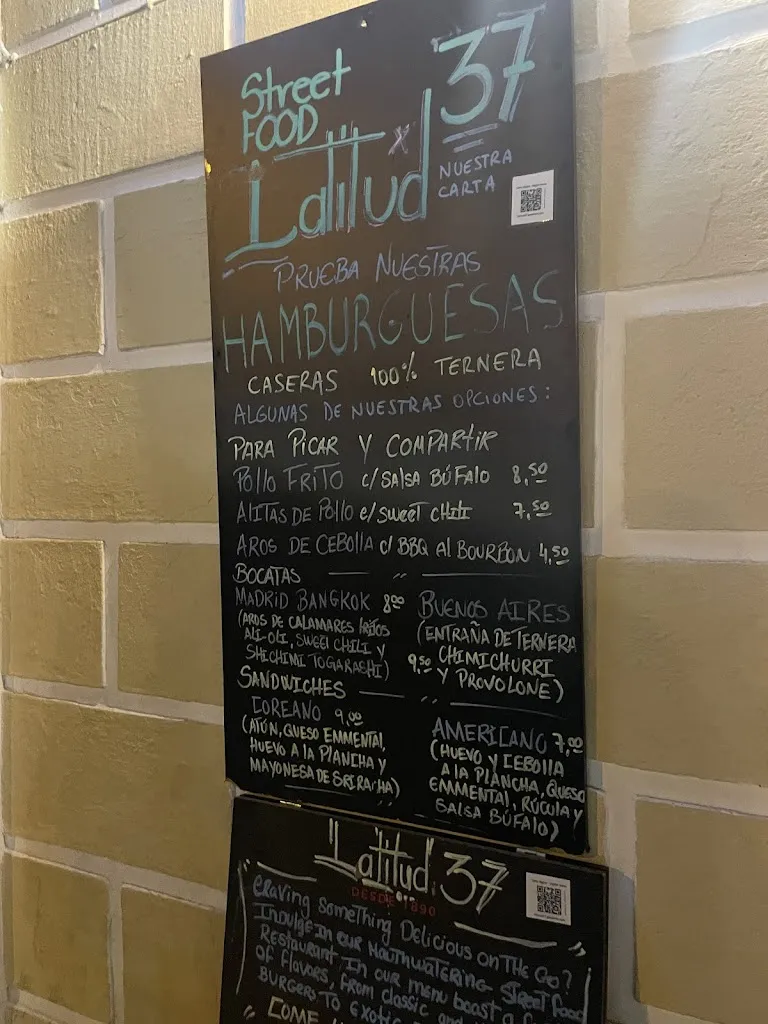 Street
FOOD
Latitud 37
NUESTRA
CARTA
PRUEBA NUESTRAS
HAMBURGUESAS
CASERAS 100% TERNERA
ALGUNAS DE NUESTRAS OPCIONES:
PARA PICAR Y COMPARTIR
Pollo FRITO c/SALSA BÚFALO 8,50
ALITAS DE Pollo c/SWEET CHILI 7,50
AROS DE CEBOLLA c/ BBQ AL BOURBON 4,50
BOCATAS
MADRID BANGKOK 8,00
(AROS DE CALAMARES fRITOS
ALI-OLI, SWEET CHILI Y
SHICHIMI TOGARASHI)
BUENOS AIRES
(ENTRAÑA DE TERNERA
9,50 CHIMICHURRI
Y PROVOLONE)
SANDWICHES
COREANO 9,00
(ATÚN, QUESO EMMENTAL,
HUEVO A LA PLANCHA Y
MAYONESA DE SRIRACHA)
AMERICANO 7,00
(HUEVO Y CEBOLLA
A LA PLANCHA, QUESO
EMMENTAL, RÚCULA Y
SALSA BÚFALO)
Latitud 37
DESDE 1890
CRAVING SOMETHING DELICIOUS ON THE GO?
INDULGE IN OUR MOUTHWATERING STREET FOOD
RESTAURANT. IN OUR MENU BOAST A
OF FLAVORS, FROM CLASSIC and
BURGERS TO EXOTIC
COME